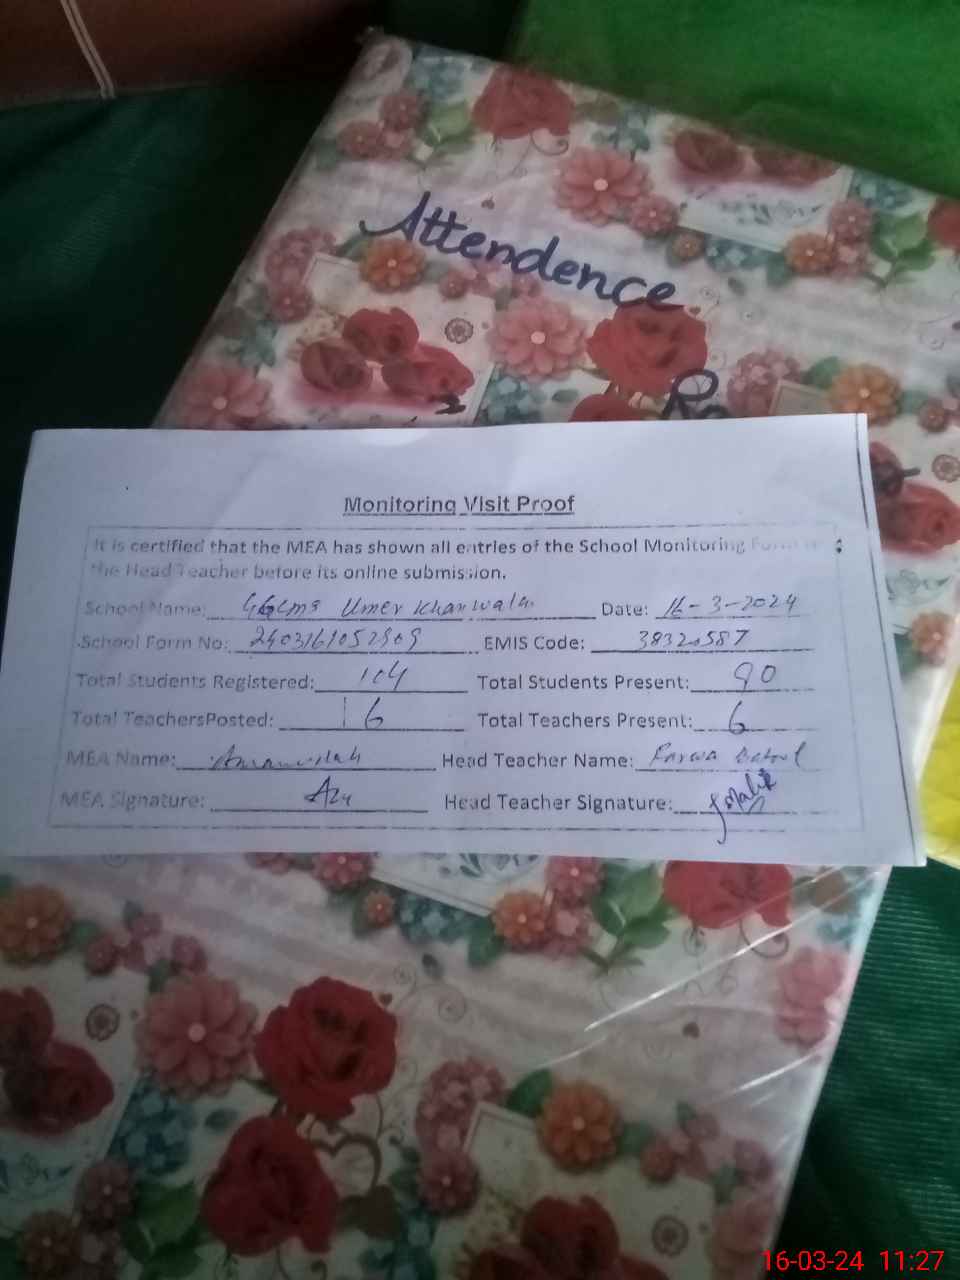 Attendence
Monitoring Visit Proof
It is certified that the MEA has shown all entries of the School Monitoring Form
the Head Teacher before its online submission.
School Name: Umer Kharwala Date: 16-3-2024
School Form No: EMIS Code: 38320587
Total Students Registered: 104 Total Students Present: 90
Total TeachersPosted: 6 Total Teachers Present: 6
MEA Name: Head Teacher Name: Farwa Batool
MEA Signature: Head Teacher Signature: Malik
16-03-24 11:27